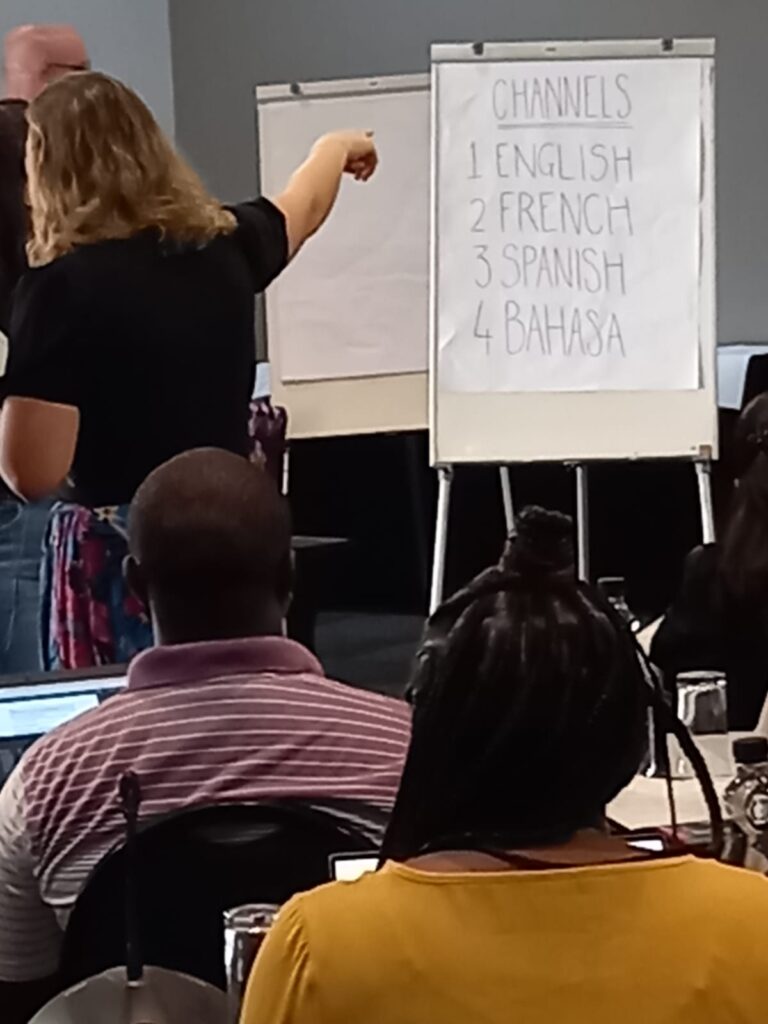 CHANNELS
1 ENGLISH
2 FRENCH
3 SPANISH
4 BAHASA